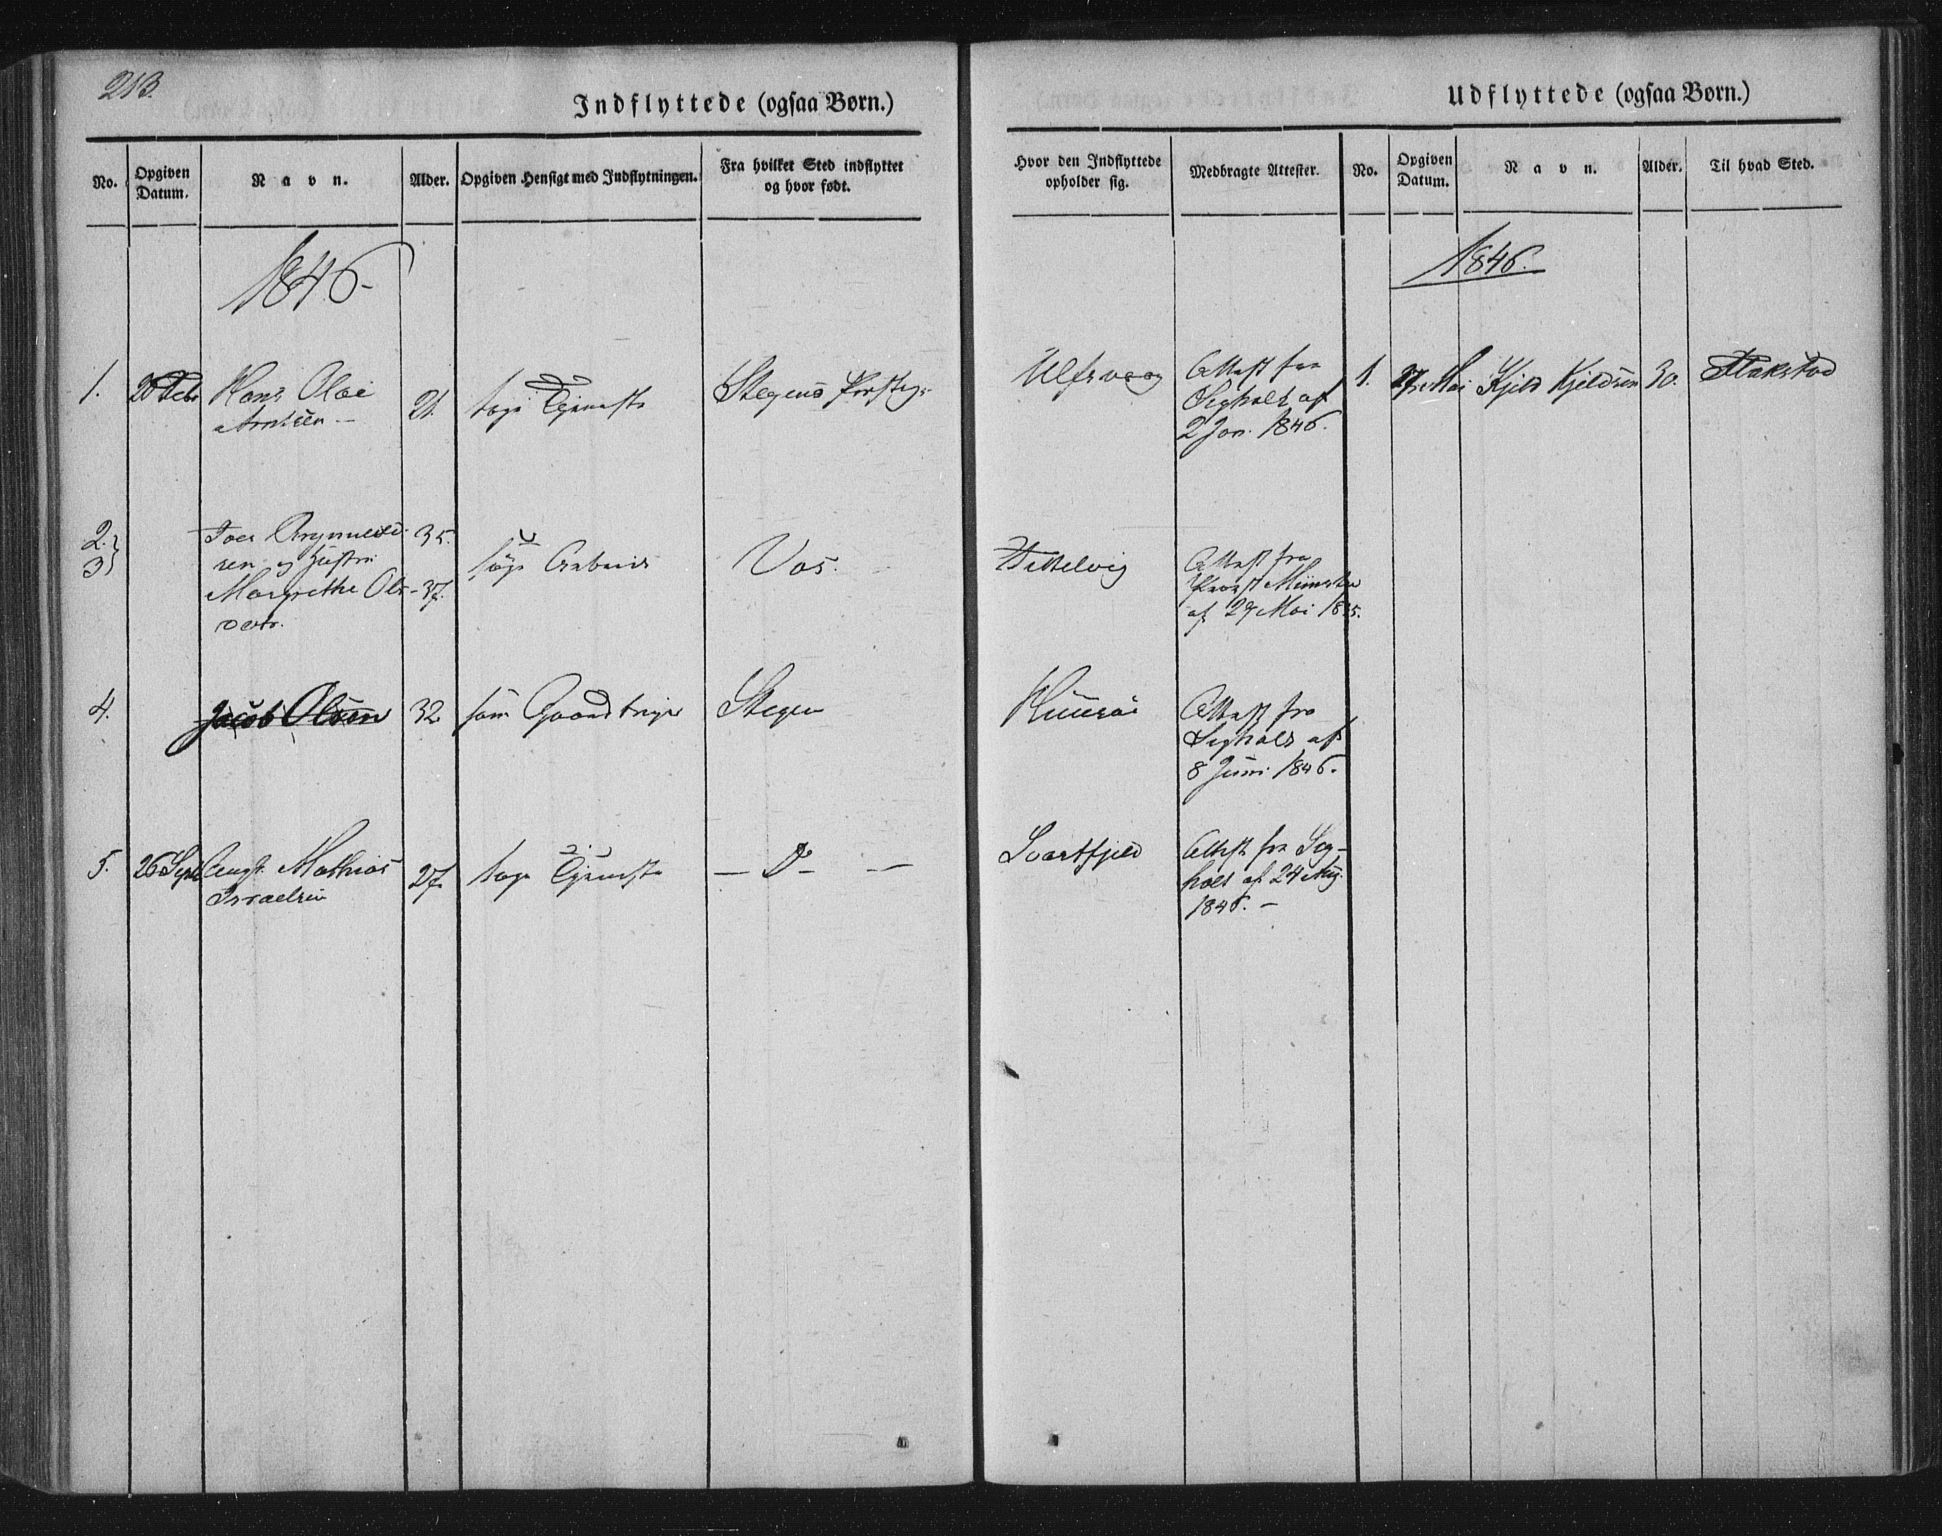 213.
Indflyttede (ogsaa Børn.)
No. Opgiven Datum. Navn. Alder. Opgiven Hensigt med Indflytningen. Fra hvilket Sted indflyttet og hvor født.
1846.
1. 20 Febr Hans Olai 21. søge Tjeneste Stegens Præstegj:
Arntsen.
2. Iver Brynnild- 35. søge Arbeid Vos.
3 sen og Hustru
Margrethe Ols- 37.
datr.
4. Jacob Olsen 32 som Gaardbruger Stegen
5. 26 Sept Mathias 27. søge Tjeneste — Do —
Israelsen
Udflyttede (ogsaa Børn.)
Hvor den Indflyttede opholder sig. Medbragte Attester. No. Opgiven Datum. Navn. Alder. Til hvad Sted.
1846.
Ulfsvaag Attest fra 1. 27 Mai Kjeld Kjeldsen 30. Flakstad
Sigholt af
2 Jan. 1846.
Tettelvig Attest fra
Provst Münster
af 27 Mai 1835.
Attest fra
Sighols af
8 Juni 1846.
Svartfjeld Attest fra Sig-
holt af 24 Aug.
1846. —